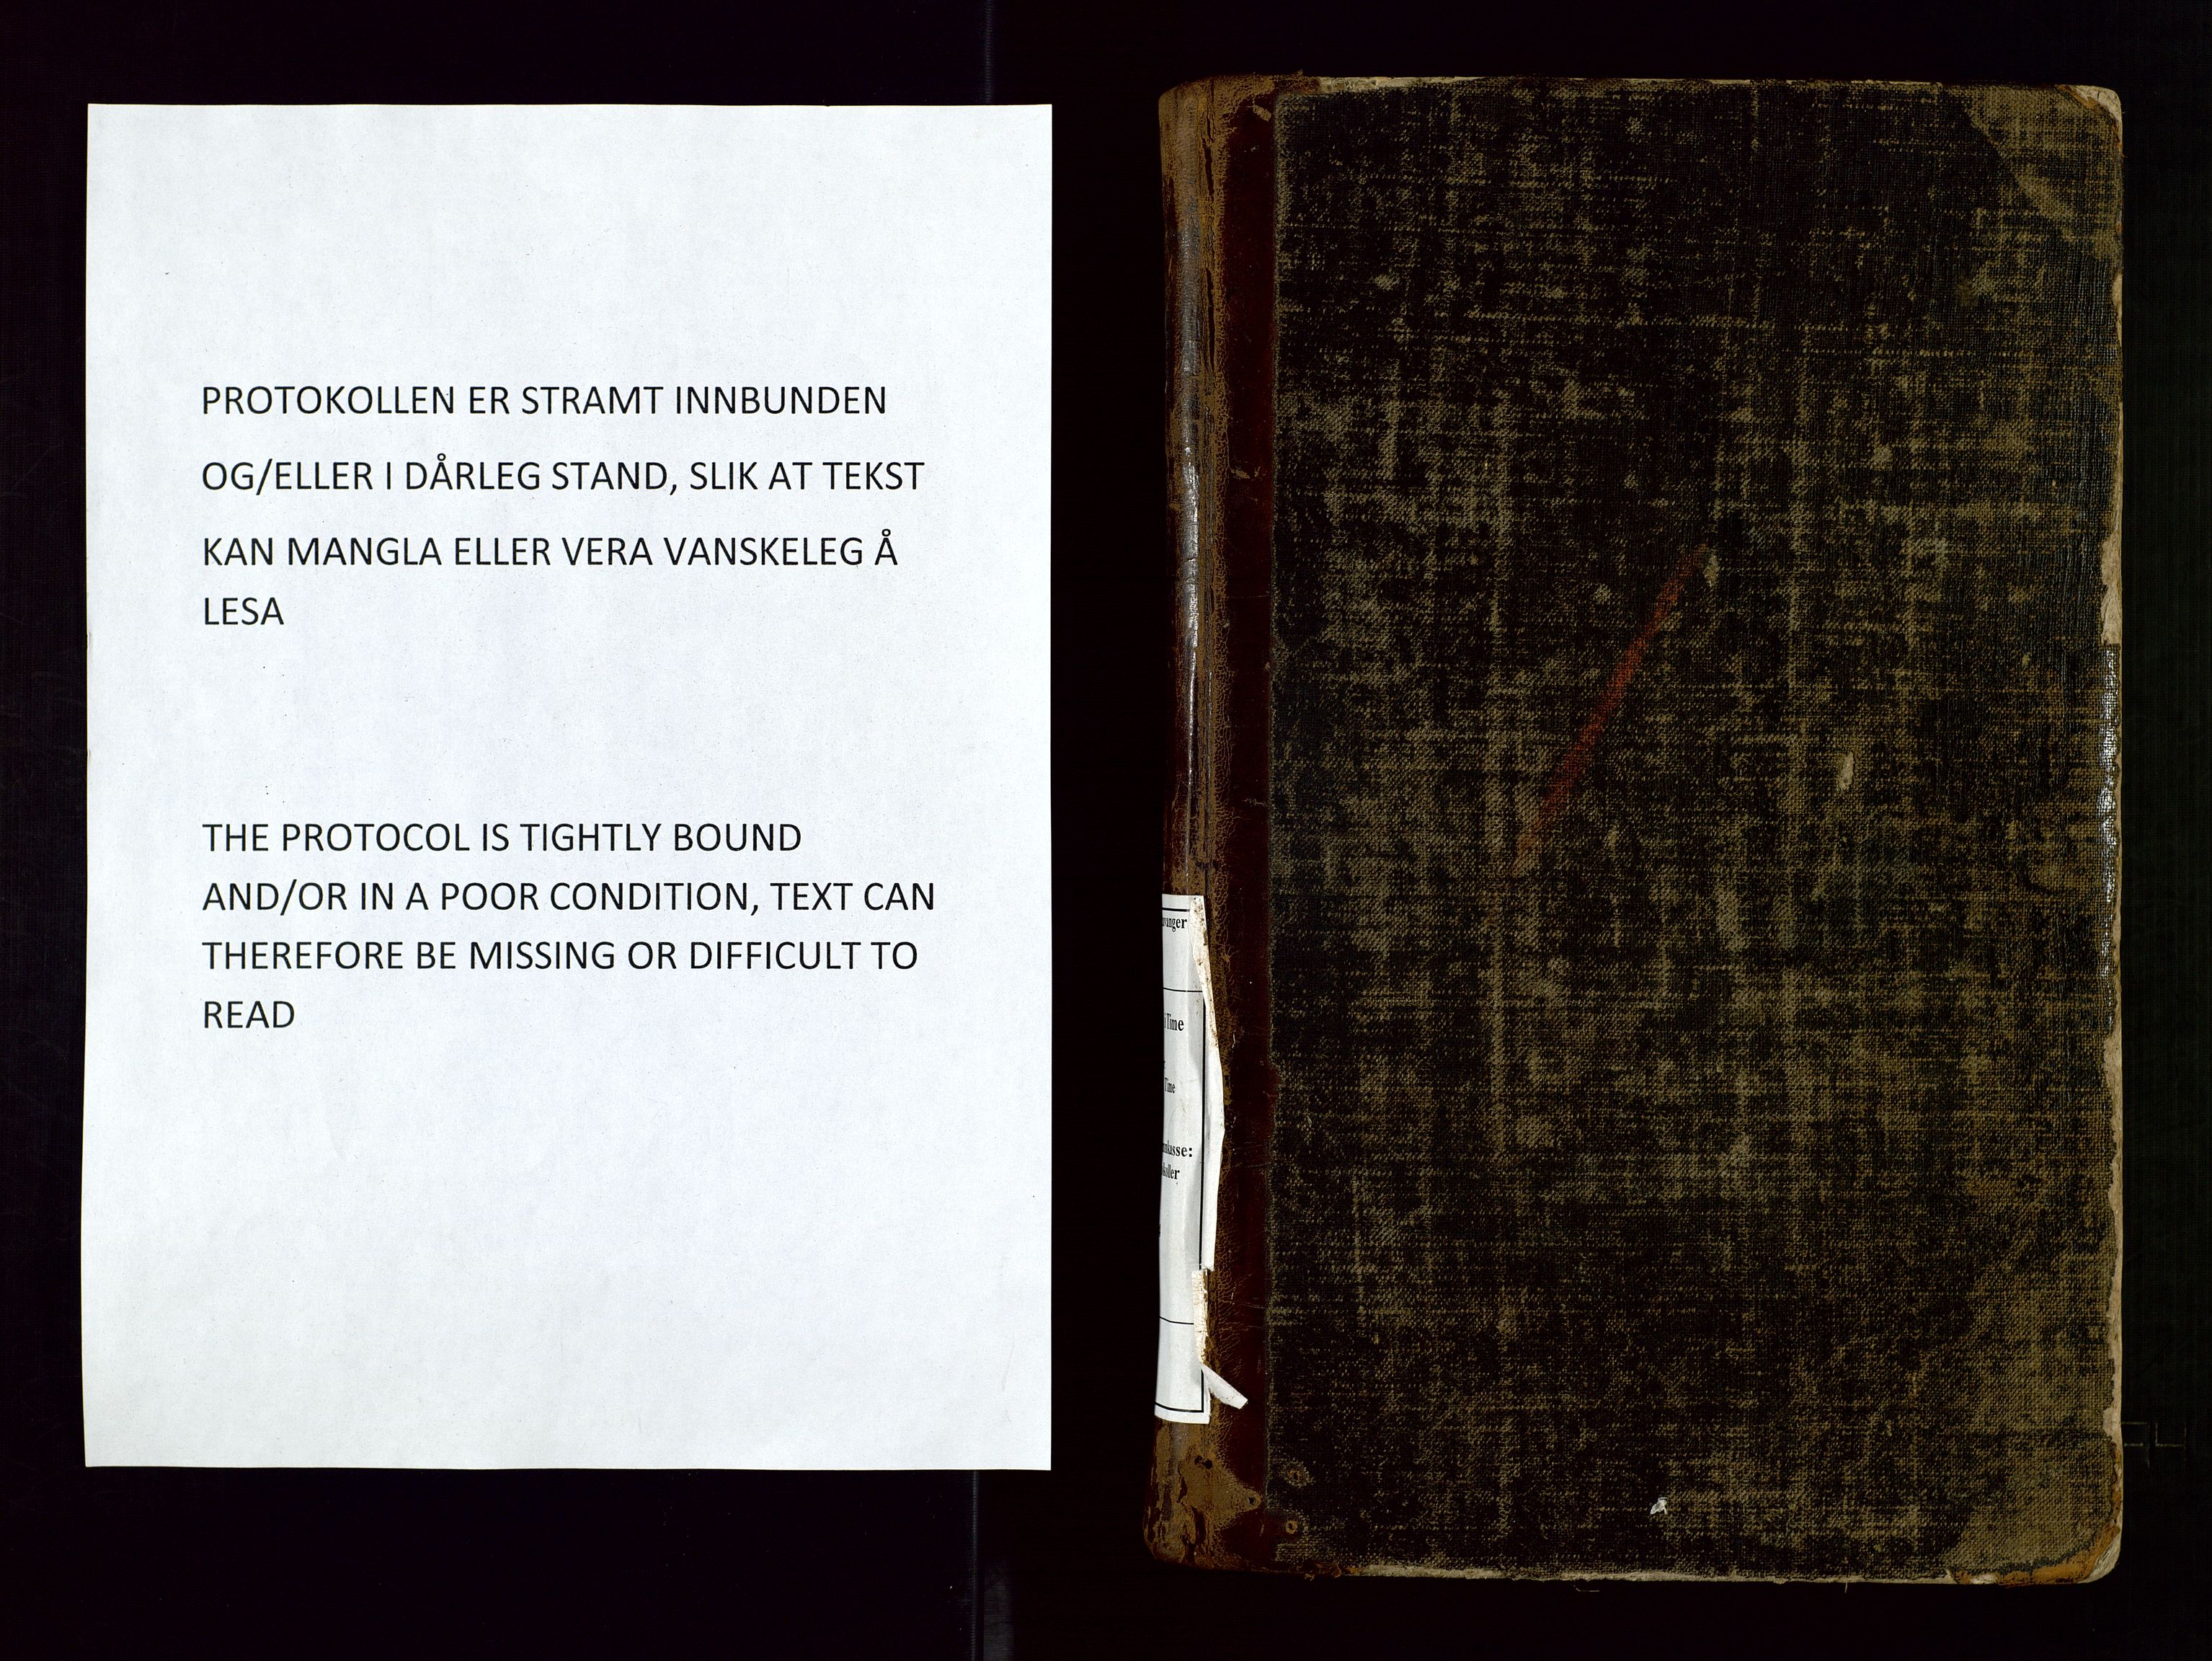 PROTOKOLLEN ER STRAMT INNBUNDEN
OG/ELLER I DÅRLEG STAND, SLIK AT TEKST
KAN MANGLA ELLER VERA VANSKELEG Å
LESA
THE PROTOCOL IS TIGHTLY BOUND
AND/OR IN A POOR CONDITION, TEXT CAN
THEREFORE BE MISSING OR DIFFICULT TO
READ
Time
Time